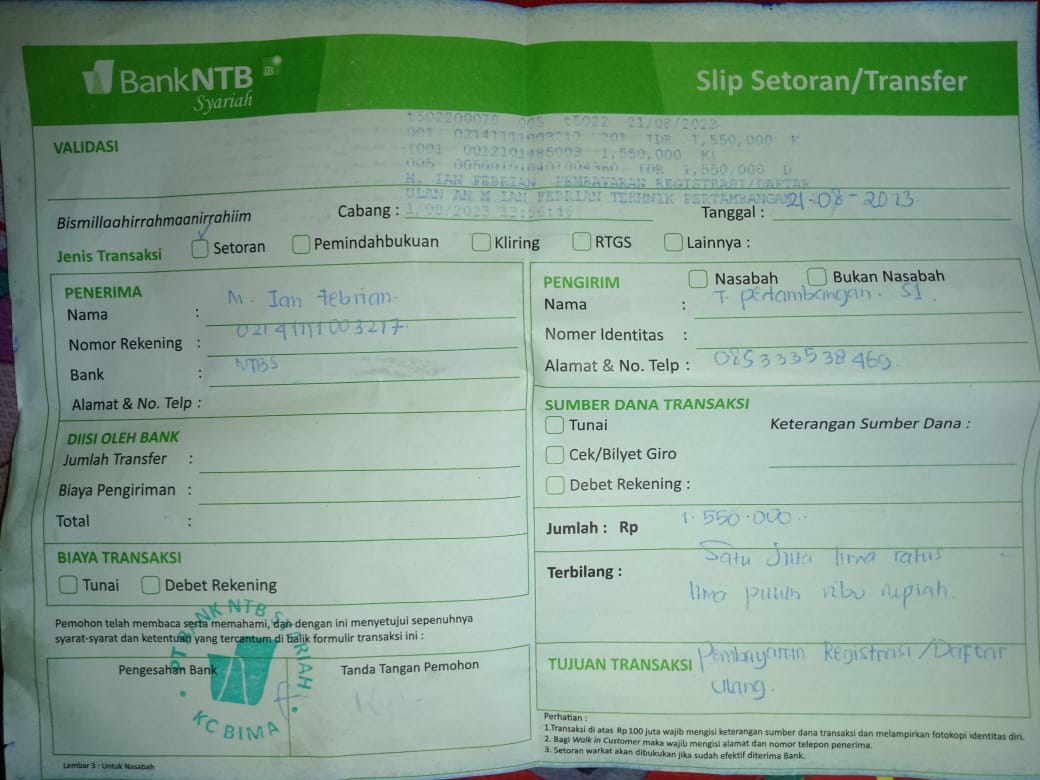 BankNTB
Syariah
Slip Setoran/Transfer
VALIDASI
005 t5022 21/08/2023
201 TDR 1,550,000 K
1,550,000 K)
TDR 1,550,000 D
M. IAN FEBRIAN PEMBAYARAN REGISTRASI/DAFTAR
ULAN AN M IAN FEBRIAN TEKHNIK PERTAMBANGAN
Bismillaahirrahmaanirrahiim
Cabang :
Tanggal : 21-08-2023
Jenis Transaksi
Setoran
Pemindahbukuan
Kliring
RTGS
Lainnya :
PENERIMA
Nama : M. Ian Febrian.
Nomor Rekening : 02141111003217.
Bank : NTBS
Alamat & No. Telp :
DIISI OLEH BANK
Jumlah Transfer :
Biaya Pengiriman :
Total :
BIAYA TRANSAKSI
Tunai
Debet Rekening
Pemohon telah membaca serta memahami, dan dengan ini menyetujui sepenuhnya
syarat-syarat dan ketentuan yang tercantum di balik formulir transaksi ini :
Pengesahan Bank
Tanda Tangan Pemohon
PT BANK NTB SYARIAH
KC BIMA
Lembar 3 : Untuk Nasabah
PENGIRIM
Nasabah
Bukan Nasabah
Nama : T. Pertambangan. S1.
Nomer Identitas :
Alamat & No. Telp : 085333538469.
SUMBER DANA TRANSAKSI
Tunai
Keterangan Sumber Dana :
Cek/Bilyet Giro
Debet Rekening :
Jumlah : Rp 1.550.000..
Terbilang : Satu Juta lima ratus
lima puluh ribu rupiah.
TUJUAN TRANSAKSI Pembayaran Registrasi/Daftar
Ulang.
Perhatian :
1.Transaksi di atas Rp100 juta wajib mengisi keterangan sumber dana transaksi dan melampirkan fotokopi identitas diri.
2. Bagi Walk in Customer maka wajib mengisi alamat dan nomor telepon penerima.
3. Setoran warkat akan dibukukan jika sudah efektif diterima Bank.